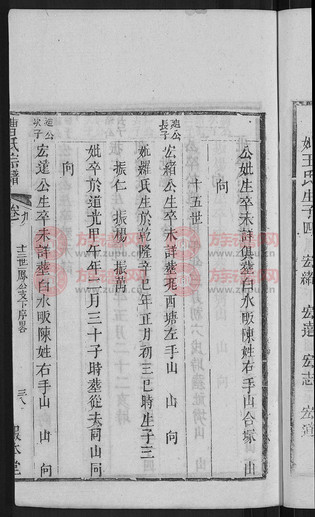 妣王氏生子四 宏緒 宏達 宏志 宏道
公妣生卒未詳俱葬白水畈陳姓右手山合塚 山
向
十五世
進公長子 宏緒公生卒未詳葬 西塘左手山 山 向
妣羅氏生於乾隆辛巳年正月初三巳時生子三
振仁 振楊 振萬
妣卒於道光甲午年二月三十子時葬從夫同山向
向
進公次子 宏達公生卒未詳葬白水畈陳姓右手山 山
曹氏宗譜 卷九 十三世鳳公支下序畧 三八 敬本堂